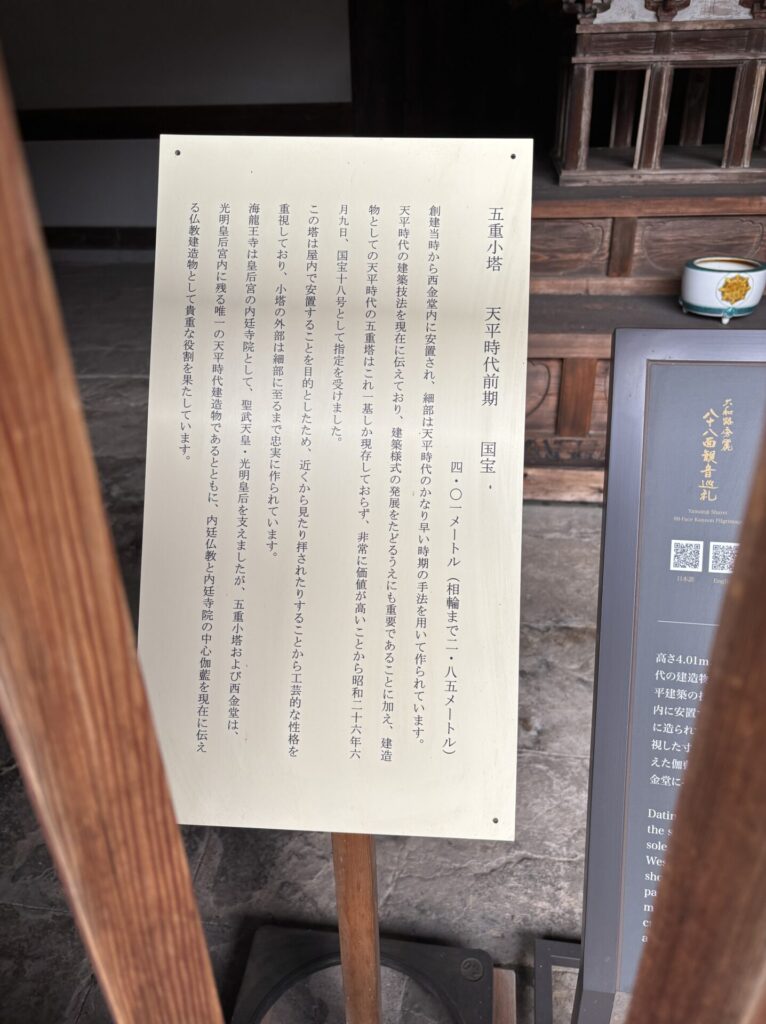 五重小塔　天平時代前期　国宝
四・〇一メートル（相輪まで二・八五メートル）
創建当時から西金堂内に安置され、細部は天平時代のかなり早い時期の手法を用いて作られています。
天平時代の建築技法を現在に伝えており、建築様式の発展をたどるうえにも重要であることに加え、建造
物としての天平時代の五重塔はこれ一基しか現存しておらず、非常に価値が高いことから昭和二十六年六
月九日、国宝十八号として指定を受けました。
この塔は屋内で安置することを目的としたため、近くから見たり拝されたりすることから工芸的な性格を
重視しており、小塔の外部は細部に至るまで忠実に作られています。
海龍王寺は皇后宮の内廷寺院として、聖武天皇・光明皇后を支えましたが、五重小塔および西金堂は、
光明皇后宮内に残る唯一の天平時代建造物であるとともに、内廷仏教と内廷寺院の中心伽藍を現在に伝え
る仏教建造物として貴重な役割を果たしています。
八十八面観音巡礼
88-Face Kannon Pilgrimage
日本語
高さ4.01m
代の建造物
平建築の
内に安置
に造られ
視した寸
えた伽
金堂に
Datin
the s
sole
Wes
sho
pa
m
c
a